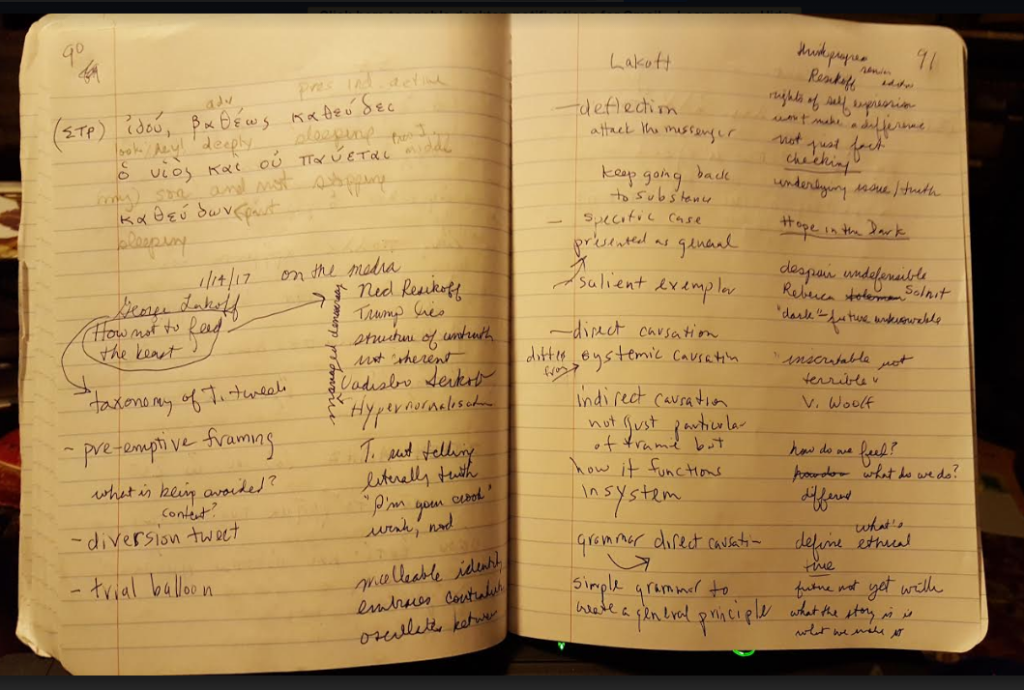 90
pres ind. active
adv
(ΣΤΡ) ἰδού, βαθέως καθεύδες
look/hey! deeply sleeping
ὁ υἱός καὶ οὐ παύεται
(my) son and not stopping
καθεύδων (part
sleeping
1/14/17 on the media
George Lakoff
How not to feed
the beast
taxonomy of T. tweets
- pre-emptive framing
what is being avoided?
context?
- diversion tweet
- trial balloon
managed democracy
Ned Resikoff
Trump lies
structure of untruth
not coherent
Vadislov Serkov
Hypernormalisation
T. not telling
literally truth
"I'm your crook"
wink, nod
malleable identity
embraces
oscillates between
91
Lakoff
- deflection
attack the messenger
keep going back
to substance
- specific case
presented as general
- salient exemplar
- direct causation
differ from systemic causatin
indirect causation
not just particular
of framing but
how it functions
in system
grammar direct causatin
simple grammar to
create a general principle
thinkprogress
Resikoff
rights of self expression
won't make a difference
not just fact
checking
underlying issue/truth
Hope in the Dark
despair undefensible
Rebecca Solnit
"dark" = future unknowable
"inscrutable not
terrible"
V. Woolf
how do we feel?
what do we do?
different
what's
define ethical
true
future not yet
what the story is is
what we make it